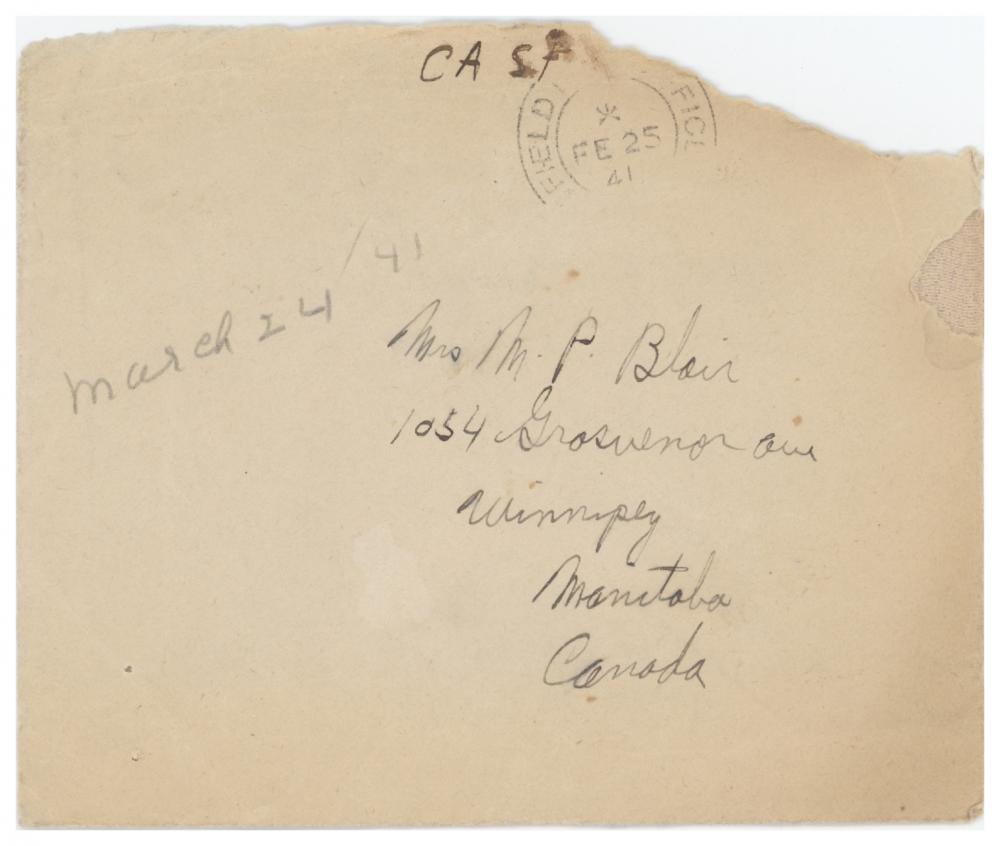 CASF
FIELD FICE
FE 25
41
March 24/41
Mrs M. P. Blair
1054 Grosvenor Ave
Winnipeg
Manitoba
Canada